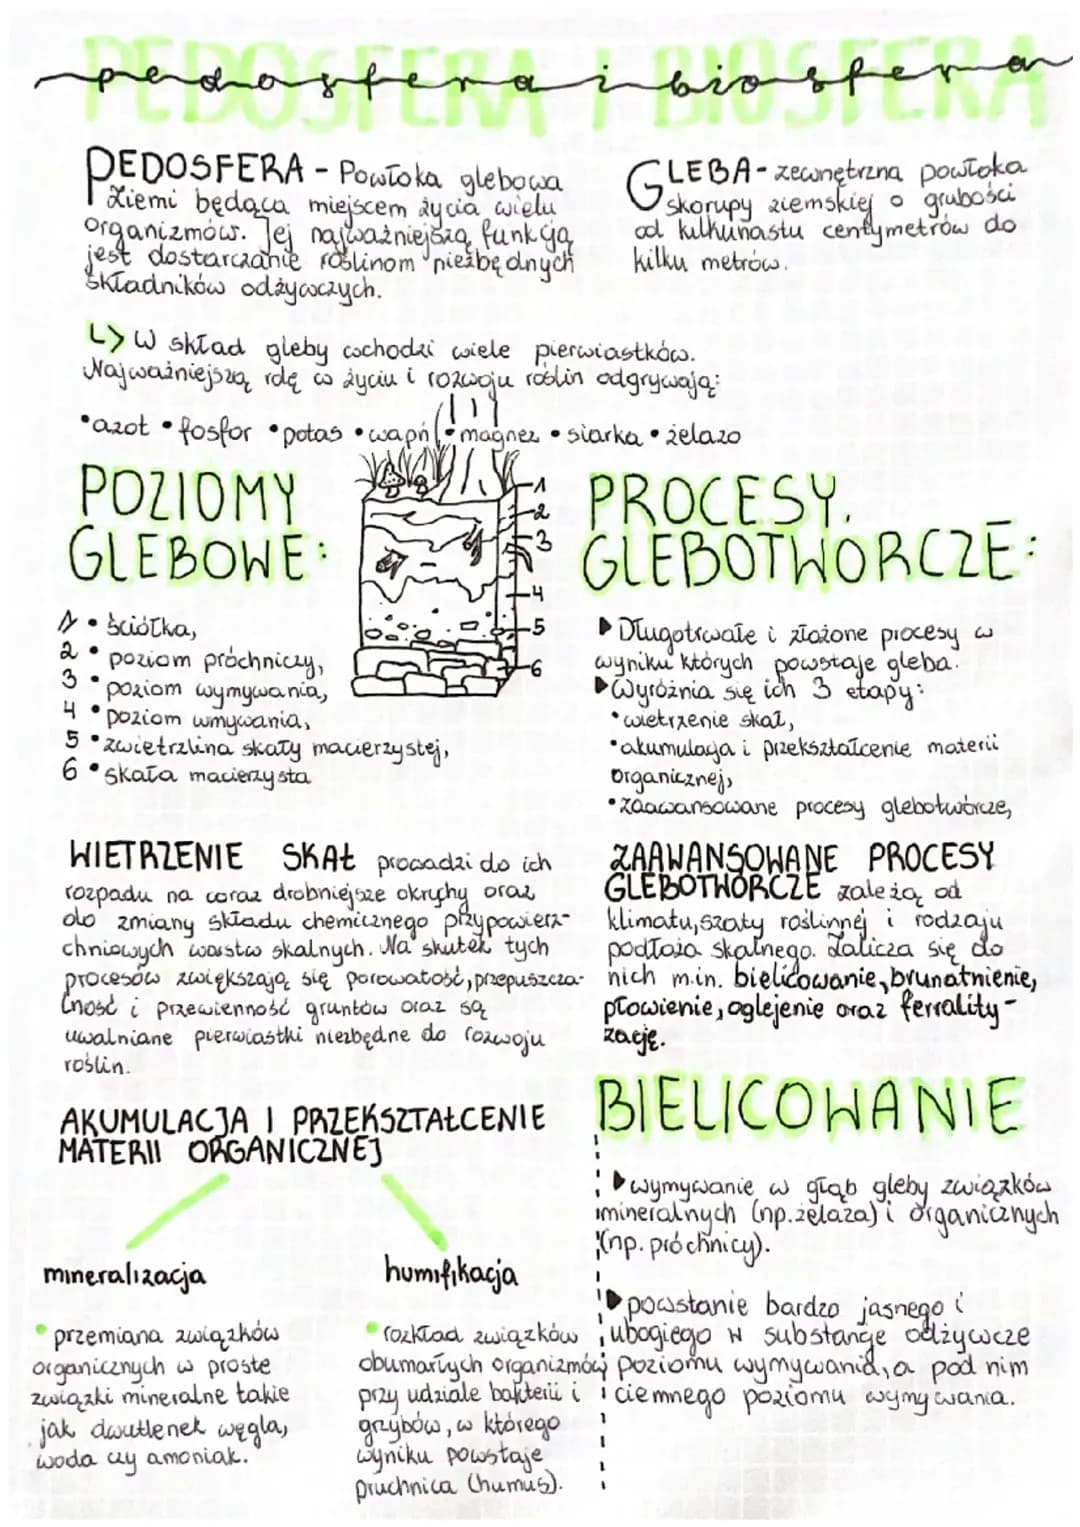 PEDOSFERA I BIOSFERA
pedosfera i biosfera
PEDOSFERA - Powłoka glebowa
Ziemi będąca miejscem życia wielu
organizmów. Jej najważniejszą funkcją
jest dostarczanie roślinom niezbędnych
składników odżywczych.
GLEBA - zewnętrzna powłoka
skorupy ziemskiej o grubości
od kilkunastu centymetrów do
kilku metrów.
↳> W skład gleby wchodzi wiele pierwiastków.
Najważniejszą rolę w życiu i rozwoju roślin odgrywają:
•azot •fosfor •potas •wapń •magnez •siarka •żelazo
POZIOMY
GLEBOWE:
1 • ściółka,
2 • poziom próchniczy,
3 • poziom wymywania,
4 • poziom wmywania,
5 • zwietrzlina skały macierzystej,
6 • skała macierzysta
1
2
3
4
5
6
PROCESY
GLEBOTWÓRCZE:
▶ Długotrwałe i złożone procesy w
wyniku których powstaje gleba.
▶ Wyróżnia się ich 3 etapy:
• wietrzenie skał,
• akumulacja i przekształcenie materii
organicznej,
• zaawansowane procesy glebotwórcze,
WIETRZENIE SKAŁ prowadzi do ich
rozpadu na coraz drobniejsze okruchy oraz
do zmiany składu chemicznego przypowierz-
chniowych warstw skalnych. Na skutek tych
procesów zwiększają się porowatość, przepuszcza-
lność i przewienność gruntów oraz są
uwalniane pierwiastki niezbędne do rozwoju
roślin.
ZAAWANSOWANE PROCESY
GLEBOTWÓRCZE zależą od
klimatu, szaty roślinnej i rodzaju
podłoża skalnego. Zalicza się do
nich m.in. bielicowanie, brunatnienie,
płowienie, oglejenie oraz ferrality-
zację.
AKUMULACJA I PRZEKSZTAŁCENIE
MATERII ORGANICZNEJ
mineralizacja
• przemiana związków
organicznych w proste
związki mineralne takie
jak dwutlenek węgla,
woda czy amoniak.
humifikacja
• rozkład związków
obumarłych organizmów
przy udziale bakterii i
grzybów, w którego
wyniku powstaje
pruchnica (humus).
BIELICOWANIE
▶ wymywanie w głąb gleby związków
mineralnych (np. żelaza) i organicznych
(np. próchnicy).
▶ powstanie bardzo jasnego i
ubogiego w substancje odżywcze
poziomu wymywania, a pod nim
ciemnego poziomu wymywania.